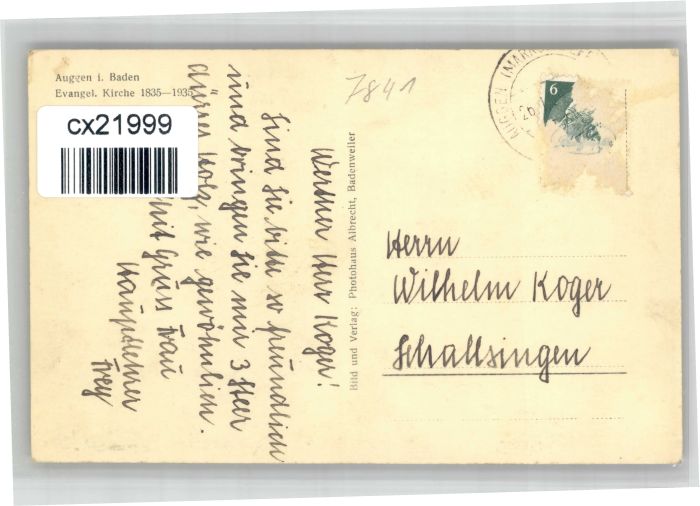 Auggen i. Baden
Evangel. Kirche 1835—1935
cx21999
7841
AUGGEN (MARKGR
6
Werther Herr Koger!
Sind Sie bitte so freundlich
und bringen Sie mir 3 Ster
dürres Holz, wie gewöhnlich.
Mit Gruss Frau
Hauptlehrer
Frey
Bild und Verlag: Photohaus Albrecht, Badenweiler
Herrn
Wilhelm Koger
Schallsingen